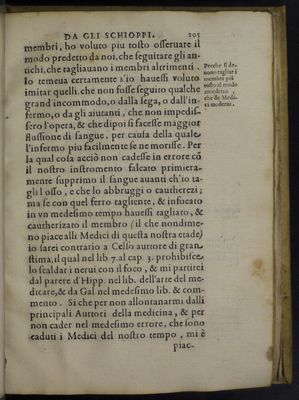 DA GLI SCHIOPPI. 205
membri, ho voluto piu tosto osseruare il
modo predetto da noi, che seguitare gli an-
tichi, che tagliauano i membri altrimenti.
Io temeua certamente s'io hauessi voluto
imitar quelli. che non fosse seguito qualche
grand'incommodo, o dalla sega, o dall'in-
fermo, o da gli aiutanti, che non impedis-
sero l'opera, & che dipoi si facesse maggior
flussione di sangue, per causa della quale
l'infermo piu facilmente se ne morisse. Per
la qual cosa acciò non cadesse in errore cō
il nostro instromento falcato primiera-
mente supprimo il sangue auanti ch'io ta-
gli l'osso, e che lo abbruggi o cautherezi;
ma se con quel ferro tagliente, & infocato
in vn medesimo tempo hauessi tagliato, &
cautherizato il membro (il che nondime-
no piace alli Medici di questa nostra etade)
io sarei contrario a Celso auttore di gran
stima, il qual nel lib. 7. al cap. 3. prohibisce
lo scaldar i nerui con il foco, & mi partirei
dal parere d'Hipp. nel lib. dell'arte del me-
dicare, & da Gal. nel medesimo lib. & com-
mento. Si che per non allontanarmi dalli
principali Auttori della medicina, & per
non cader nel medesimo errore, che sono
caduti i Medici del nostro tempo, mi è
piac-
Perche si de-
uono tagliar i
membri più
tosto al modo
che de Medi-
ci moderni.